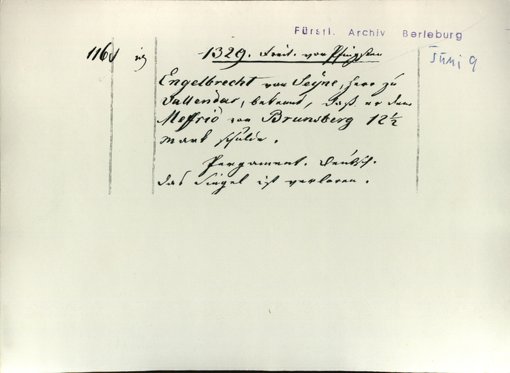 Fürstl. Archiv Berleburg
1329. Freit. vor Pfingsten
Juni 9
Engelbrecht von Seyne, herr zu
Vallendar, bekennt, daß er dem
von Brunsberg 12½
mark schulde.
Pergament. Deutsch.
Das Siegel ist verloren.